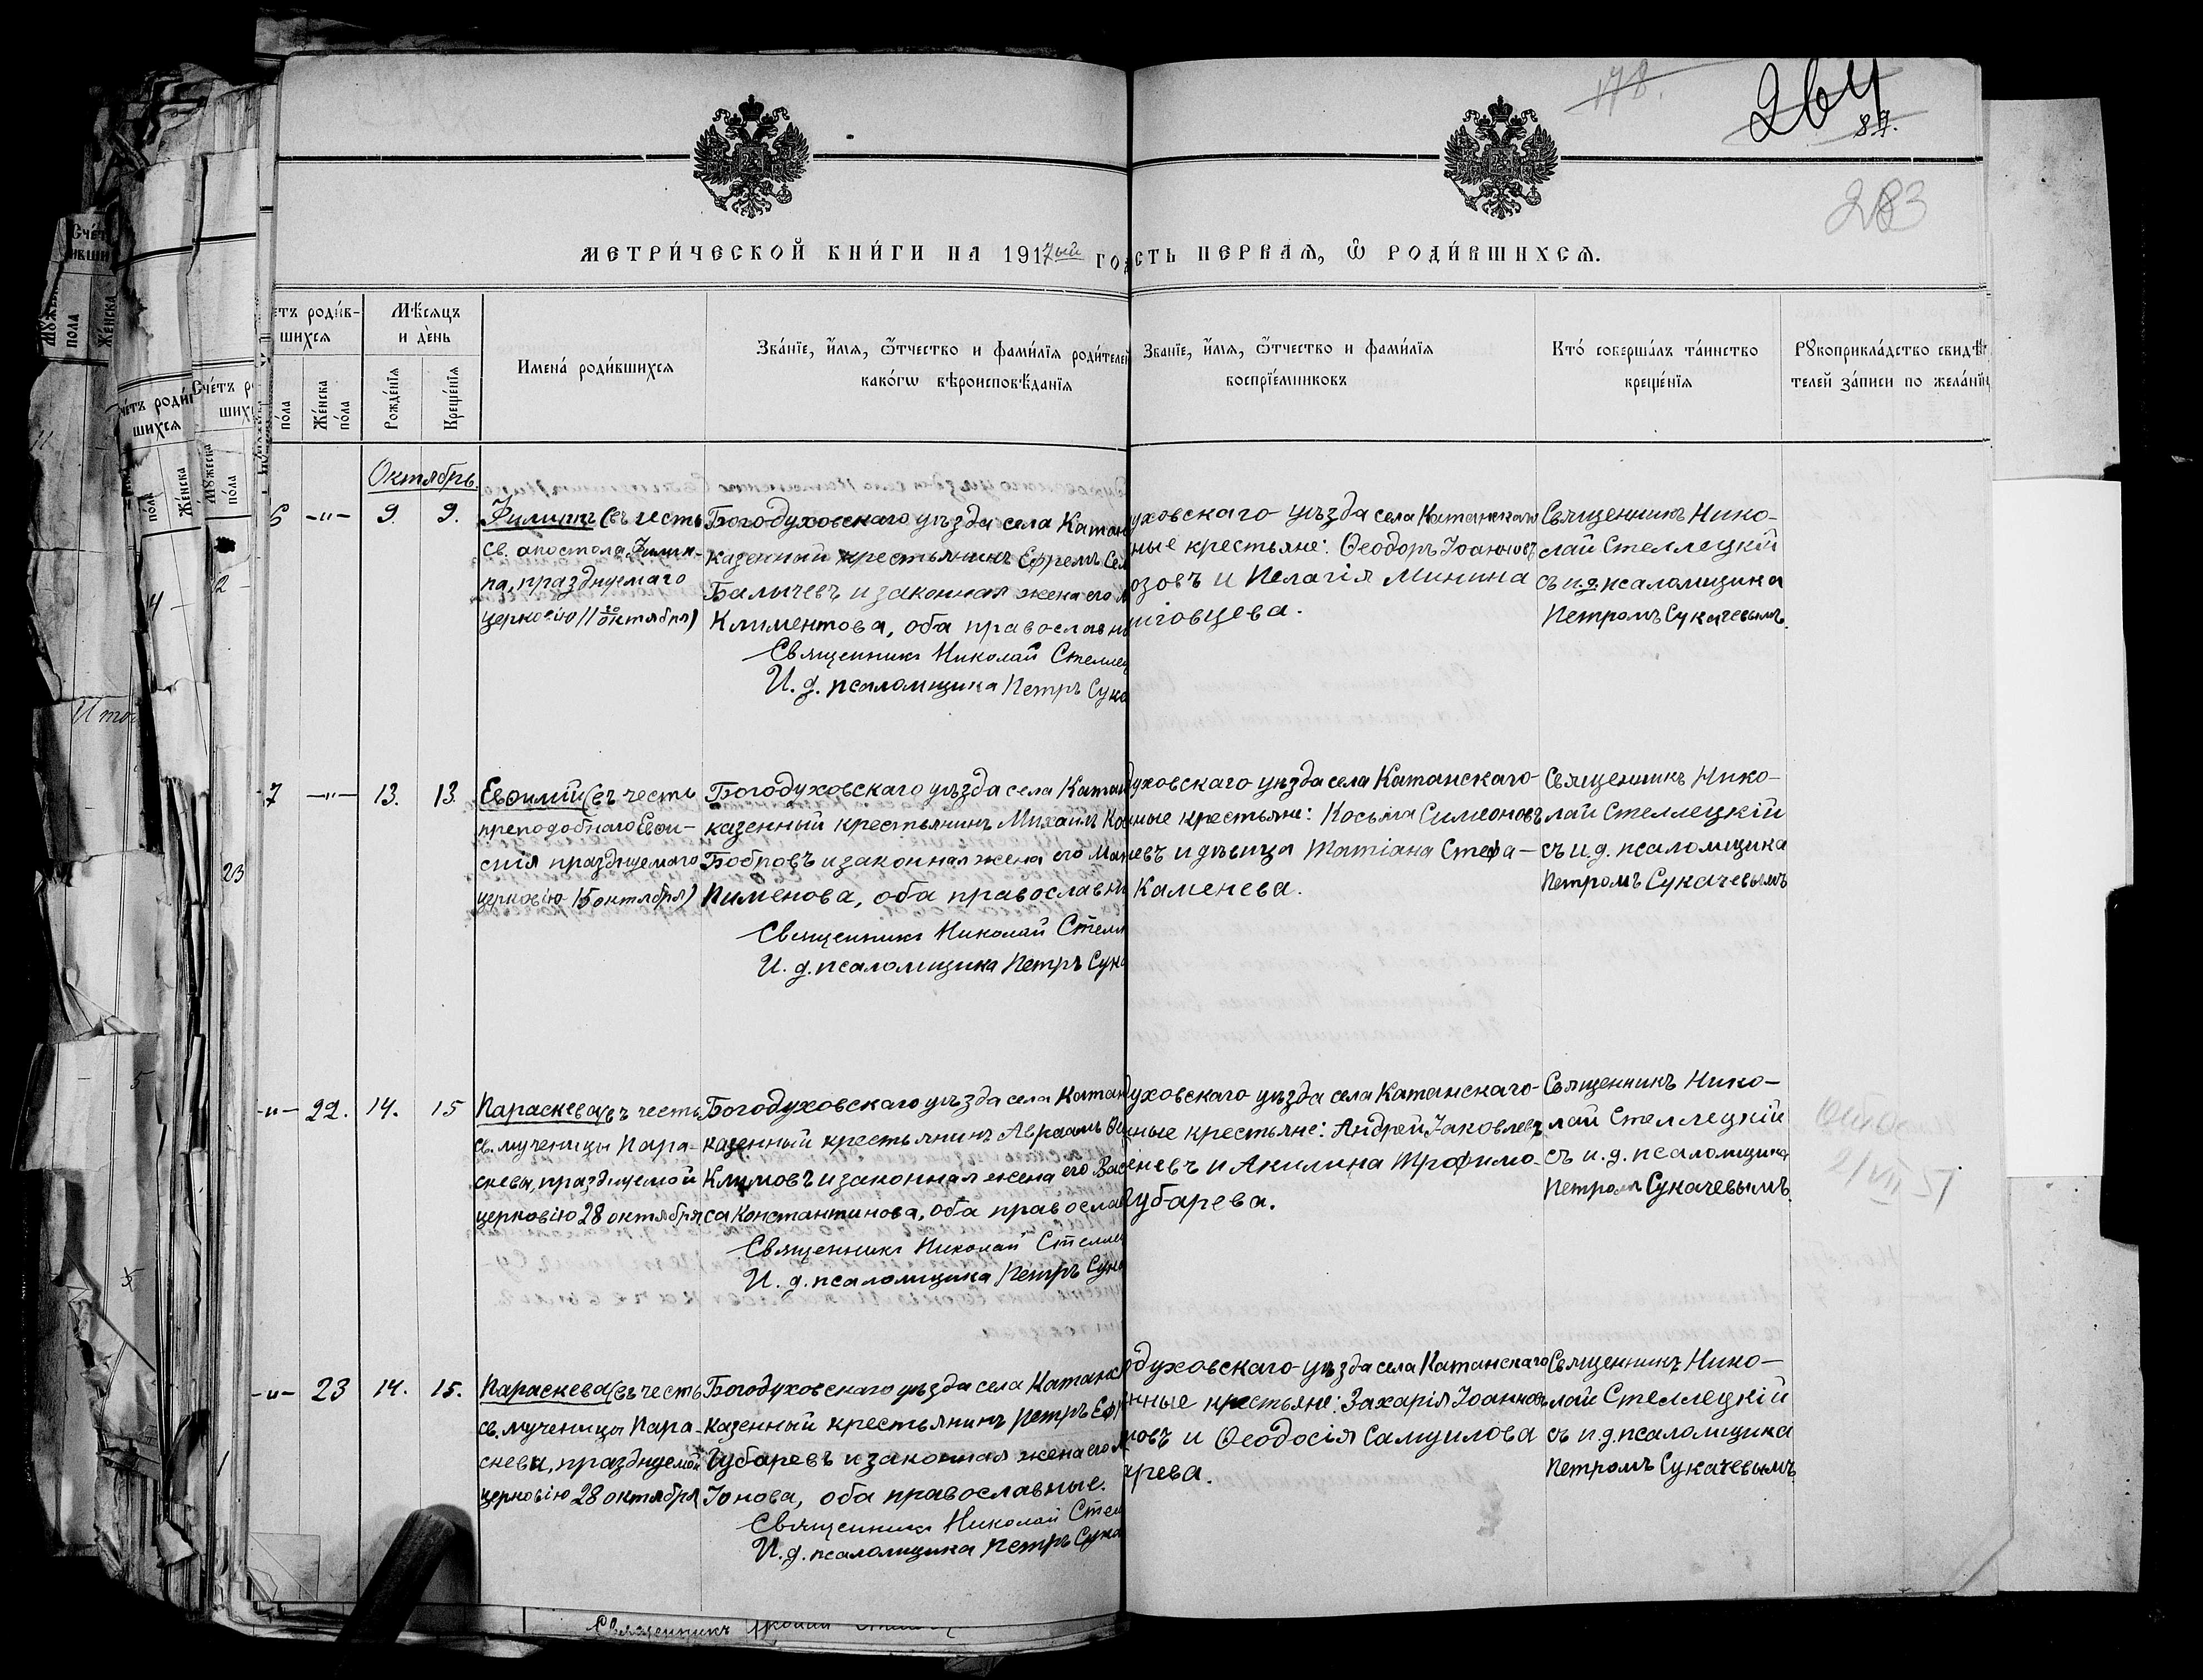 178.
264
87.
283
МЕТРИ́ЧЕСКОЙ КНИ́ГИ НА 1917ый ГО
СТЬ ПЕРВАЯ, Ѡ РОДИ́ВШИХСЯ.
етъ роди́в-
шихся
по́ла
Же́нска
по́ла
Мѣ́сяцъ
и де́нь
Рожде́нїя
Креще́нїя
Имена̀ роди́вшихся
Зва́нїе, и́мя, ѻ́тчество и фами́лїя роди́телей
како́гѡ вѣроисповѣ́данїя
Зва́нїе, и́мя, ѻ́тчество и фами́лїя
воспрїе́мниковъ
Кто́ соверша́лъ та́инство
креще́нїя
Рꙋкоприкла́дство свидѣ́-
телей за́писи по жела́нїю
Октябрь.
6 -"- 9. 9.
Филиппъ (въ честь
св. апостола Филип-
па, празднуемаго
церковію 11 го октября)
Богодуховскаго уѣзда села Катан
казенный крестьянинъ Ефремъ Сем
Балычевъ и законная жена его
Климентова, оба православн
Священникъ Николай Стеллец
И. д. псаломщика Петръ Сука
уховскаго уѣзда села Катанскаго
ные крестьяне: Ѳеодоръ Іоанновъ
озовъ и Пелагія Минина
иговцева.
Священникъ Нико-
лай Стеллецкій
съ и. д. псаломщика
Петромъ Сукачевымъ.
7 -"- 13. 13.
Евѳимій (въ честь
преподобнаго Евѳи-
мія празднуемаго
церковію 15 октября)
Богодуховскаго уѣзда села Катан
казенный крестьянинъ Михаилъ Ко
Бобровъ и законная жена его Ма
Пименова, оба православн
Священникъ Николай Стелл
И. д. псаломщика Петръ Сука
духовскаго уѣзда села Катанскаго-
ные крестьяне: Косьма Симеоновъ
евъ и дѣвица Татіана Стефа-
Каменева.
Священникъ Нико-
лай Стеллецкій
съ и. д. псаломщика
Петромъ Сукачевымъ
-"- 22. 14. 15
Параскева (въ честь
св. мученицы Пара-
скевы, празднуемой
церковію 28 октября
Богодуховскаго уѣзда села Катан
казенный крестьянинъ Авраамъ
Климовъ и законная жена его Вас
са Константинова, оба православ
Священникъ Николай Стелле
И. д. псаломщика Петръ Сука
духовскаго уѣзда села Катанскаго-
ные крестьяне: Андрей Іаковлевъ
еневъ и Акилина Трофимо-
Губарева.
Священникъ Нико-
лай Стеллецкій
съ и. д. псаломщика
Петромъ Сукачевымъ.
2/VII 51
-"- 23 14. 15.
Параскева (въ честь
св. мученицы Пара-
скевы, празднуемой
церковію 28 октября
Богодуховскаго уѣзда села Катанс
казенный крестьянинъ Петръ Еф
Губаревъ и законная жена его
Іонова, оба православные.
Священникъ Николай Стел
И. д. псаломщика Петръ Сука
одуховскаго уѣзда села Катанскаго
нные крестьяне: Захарія Іоанновъ
ровъ и Ѳеодосія Самуилова
арева.
Священникъ Нико-
лай Стеллецкій
съ и. д. псаломщика
Петромъ Сукачевымъ
Священникъ